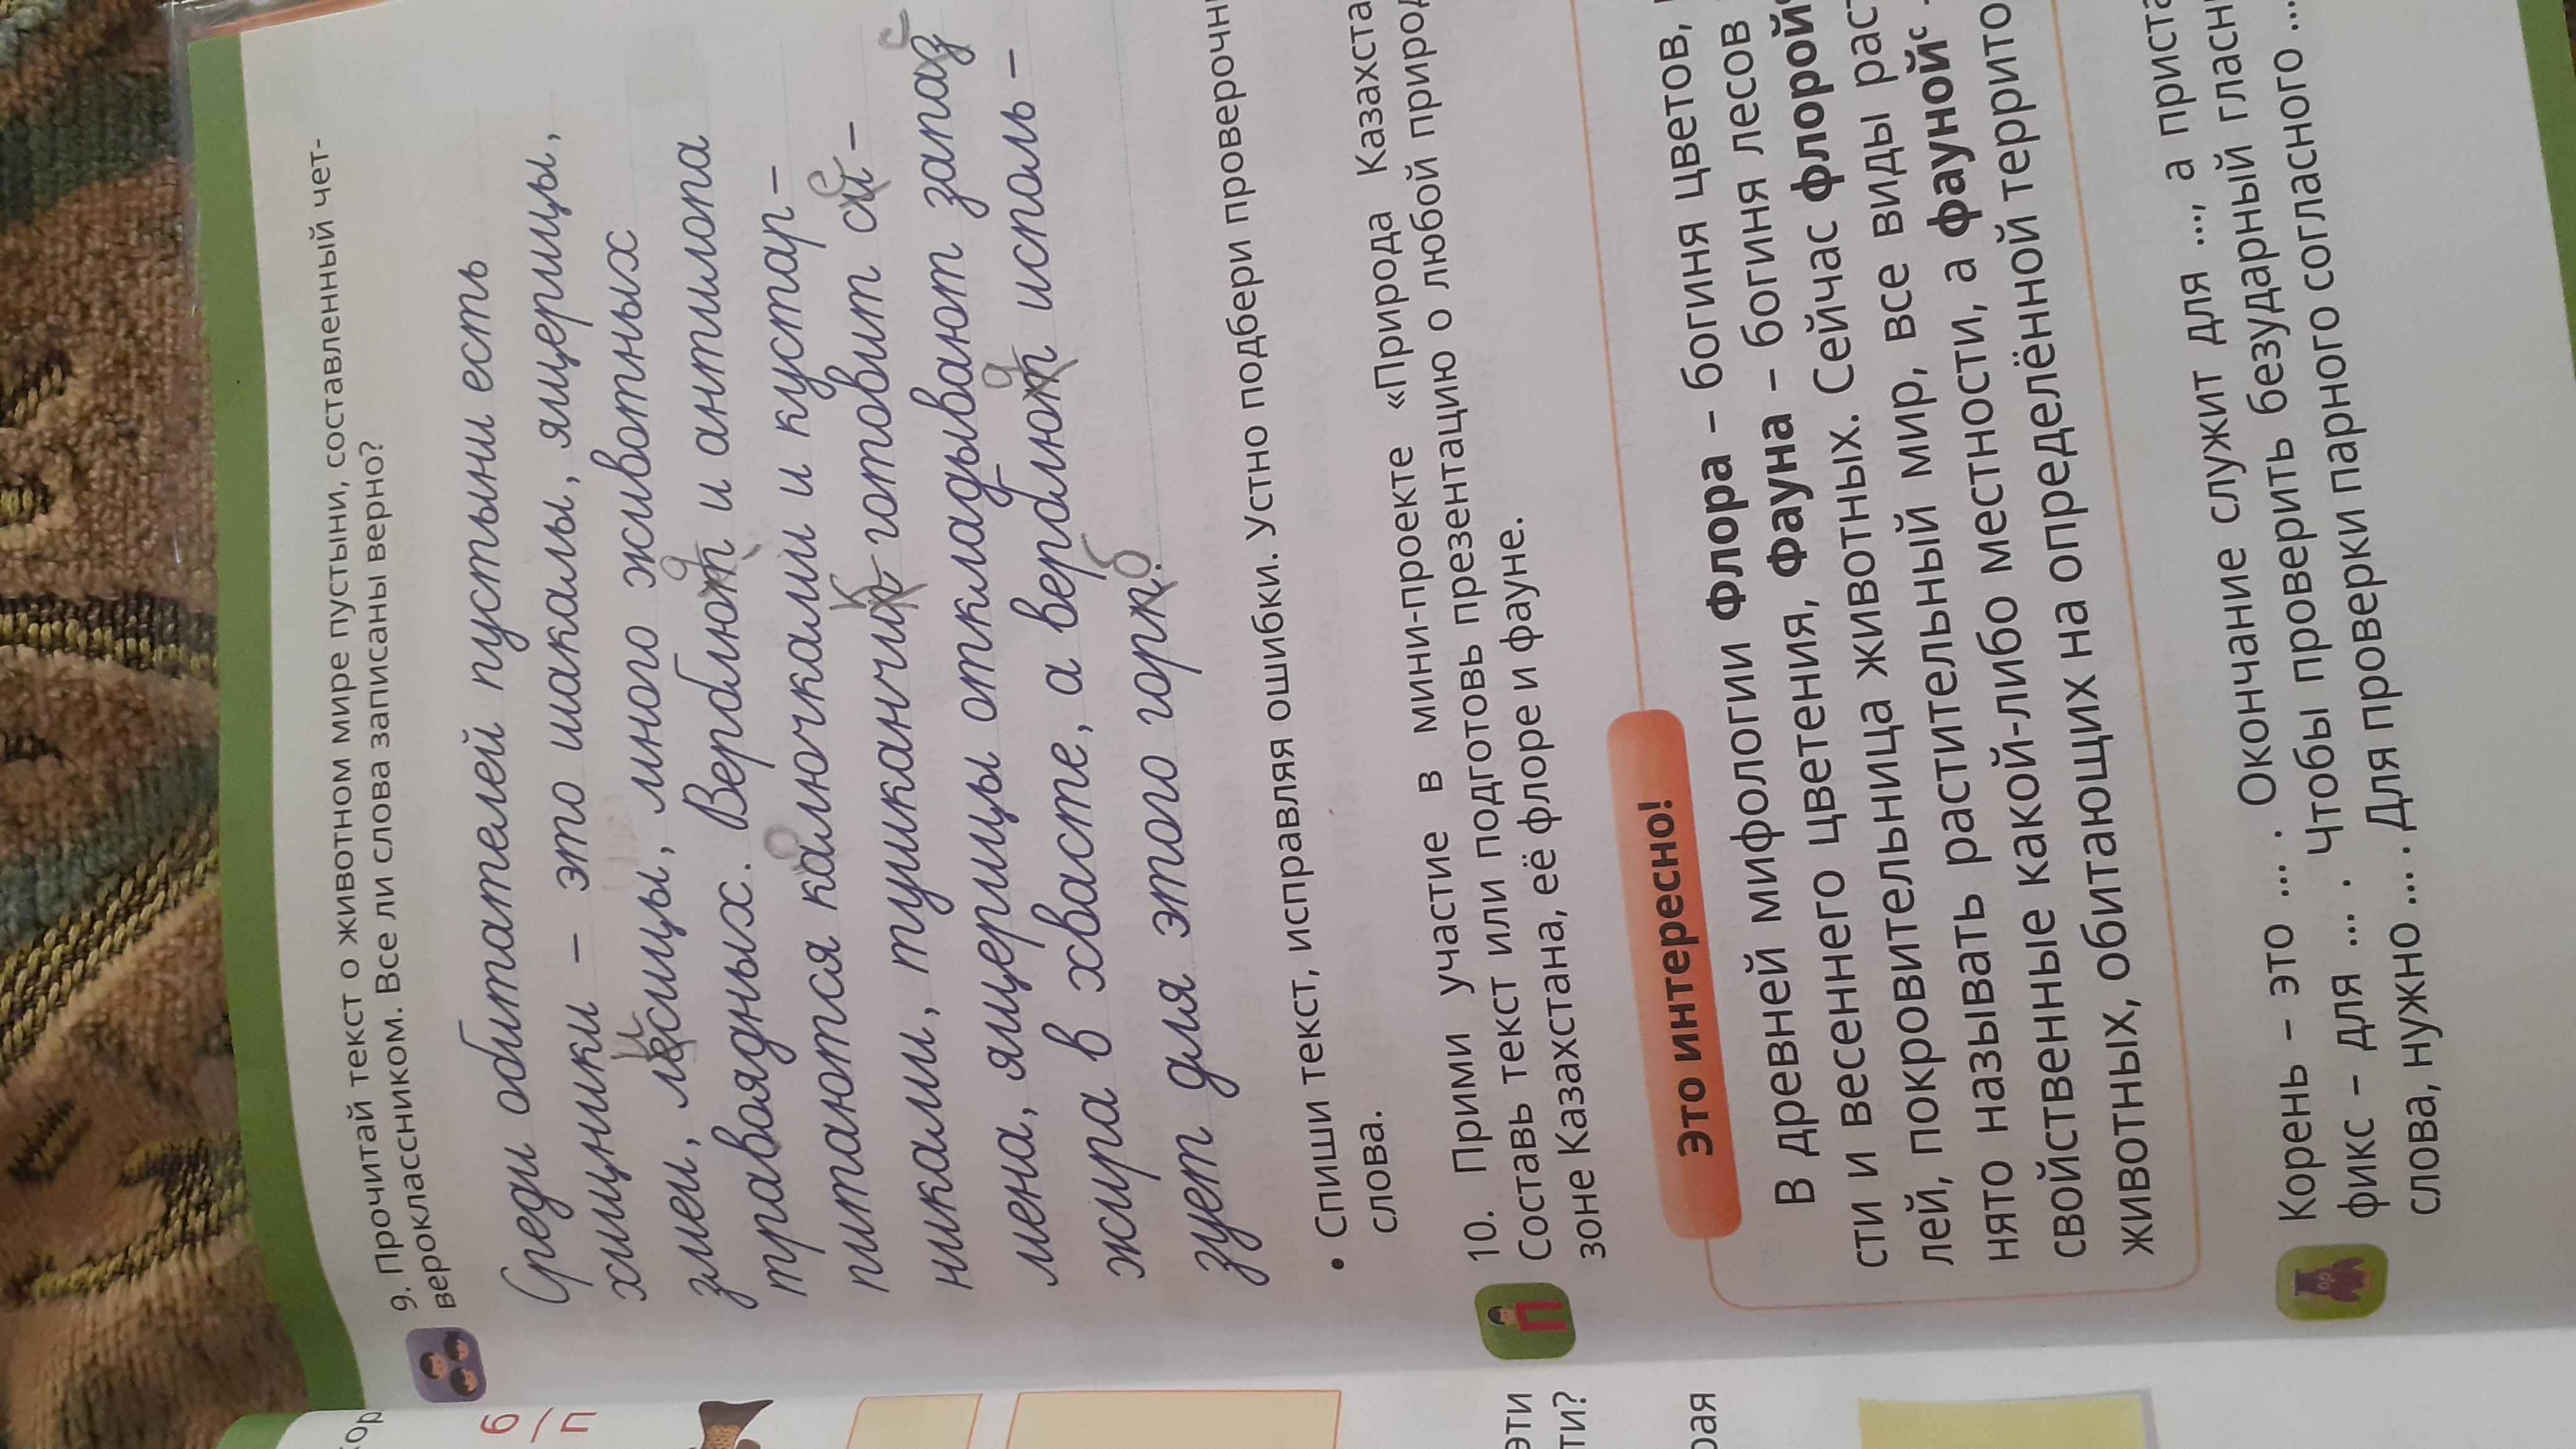 9. Прочитай текст о животном мире пустыни, составленный чет-
вероклассником. Все ли слова записаны верно?
Среди обитателей пустыни есть
хищники – это шакалы, ящерицы,
и
змеи, лесицы, много животных
д
травоядных. Верблют и антилопа
о
питаются калючками и кустар-
к
никами, тушканчиг готовит си-
е
мена, ящерицы откладывают запаз
с
жира в хвасте, а верблют исполь-
д
зует для этого горп.
б
• Спиши текст, исправляя ошибки. Устно подбери проверочн
слова.
10. Прими участие в мини-проекте «Природа Казахста
Составь текст или подготовь презентацию о любой природ
зоне Казахстана, её флоре и фауне.
Это интересно!
В древней мифологии Флора – богиня цветов,
сти и весеннего цветения, Фауна – богиня лесов
лей, покровительница животных. Сейчас флорой
нято называть растительный мир, все виды рас
свойственные какой-либо местности, а фауной с
животных, обитающих на определённой террито
Корень – это ... . Окончание служит для ..., а приста
фикс – для ... . Чтобы проверить безударный гласн
слова, нужно ... . Для проверки парного согласного ...
кор
б
п
эти
ти?
рая
П